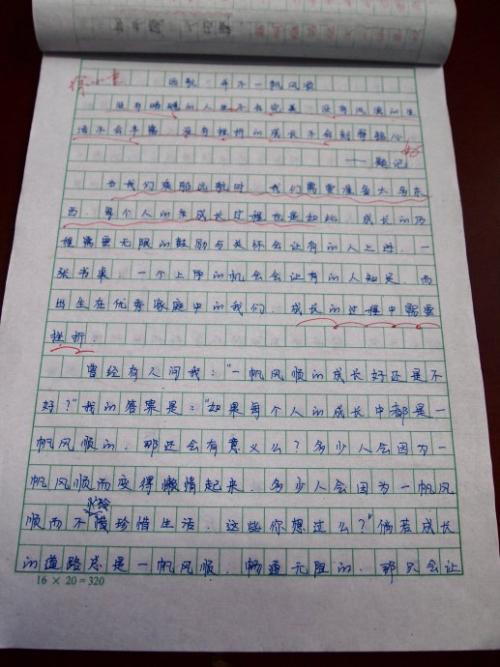 远航，并不一帆风顺
没有崎岖的人生不会完美，没有风浪的生
活不会丰富，没有挫折的成长不会刻骨铭心。
——题记
当我们准备远航时，我们需要准备太多东
西，每个人的成长过程也是如此，成长的历
程需要无限的鼓励与关怀会让有的人上进，一
张书桌，一个上学的机会会让有的人知足，而
出生在优秀家庭中的我们，成长的过程中需要
挫折。
曾经有人问我："一帆风顺的成长好还是不
好？"我的答案是："如果每个人的成长中都是一
帆风顺的，那还会有意义么？多少人会因为一
帆风顺而变得懒惰起来，多少人会因为一帆风
顺而不珍惜生活，这些你想过么？"倘若成长
的道路总是一帆风顺，畅通无阻的，那只会让
16 × 20 = 320